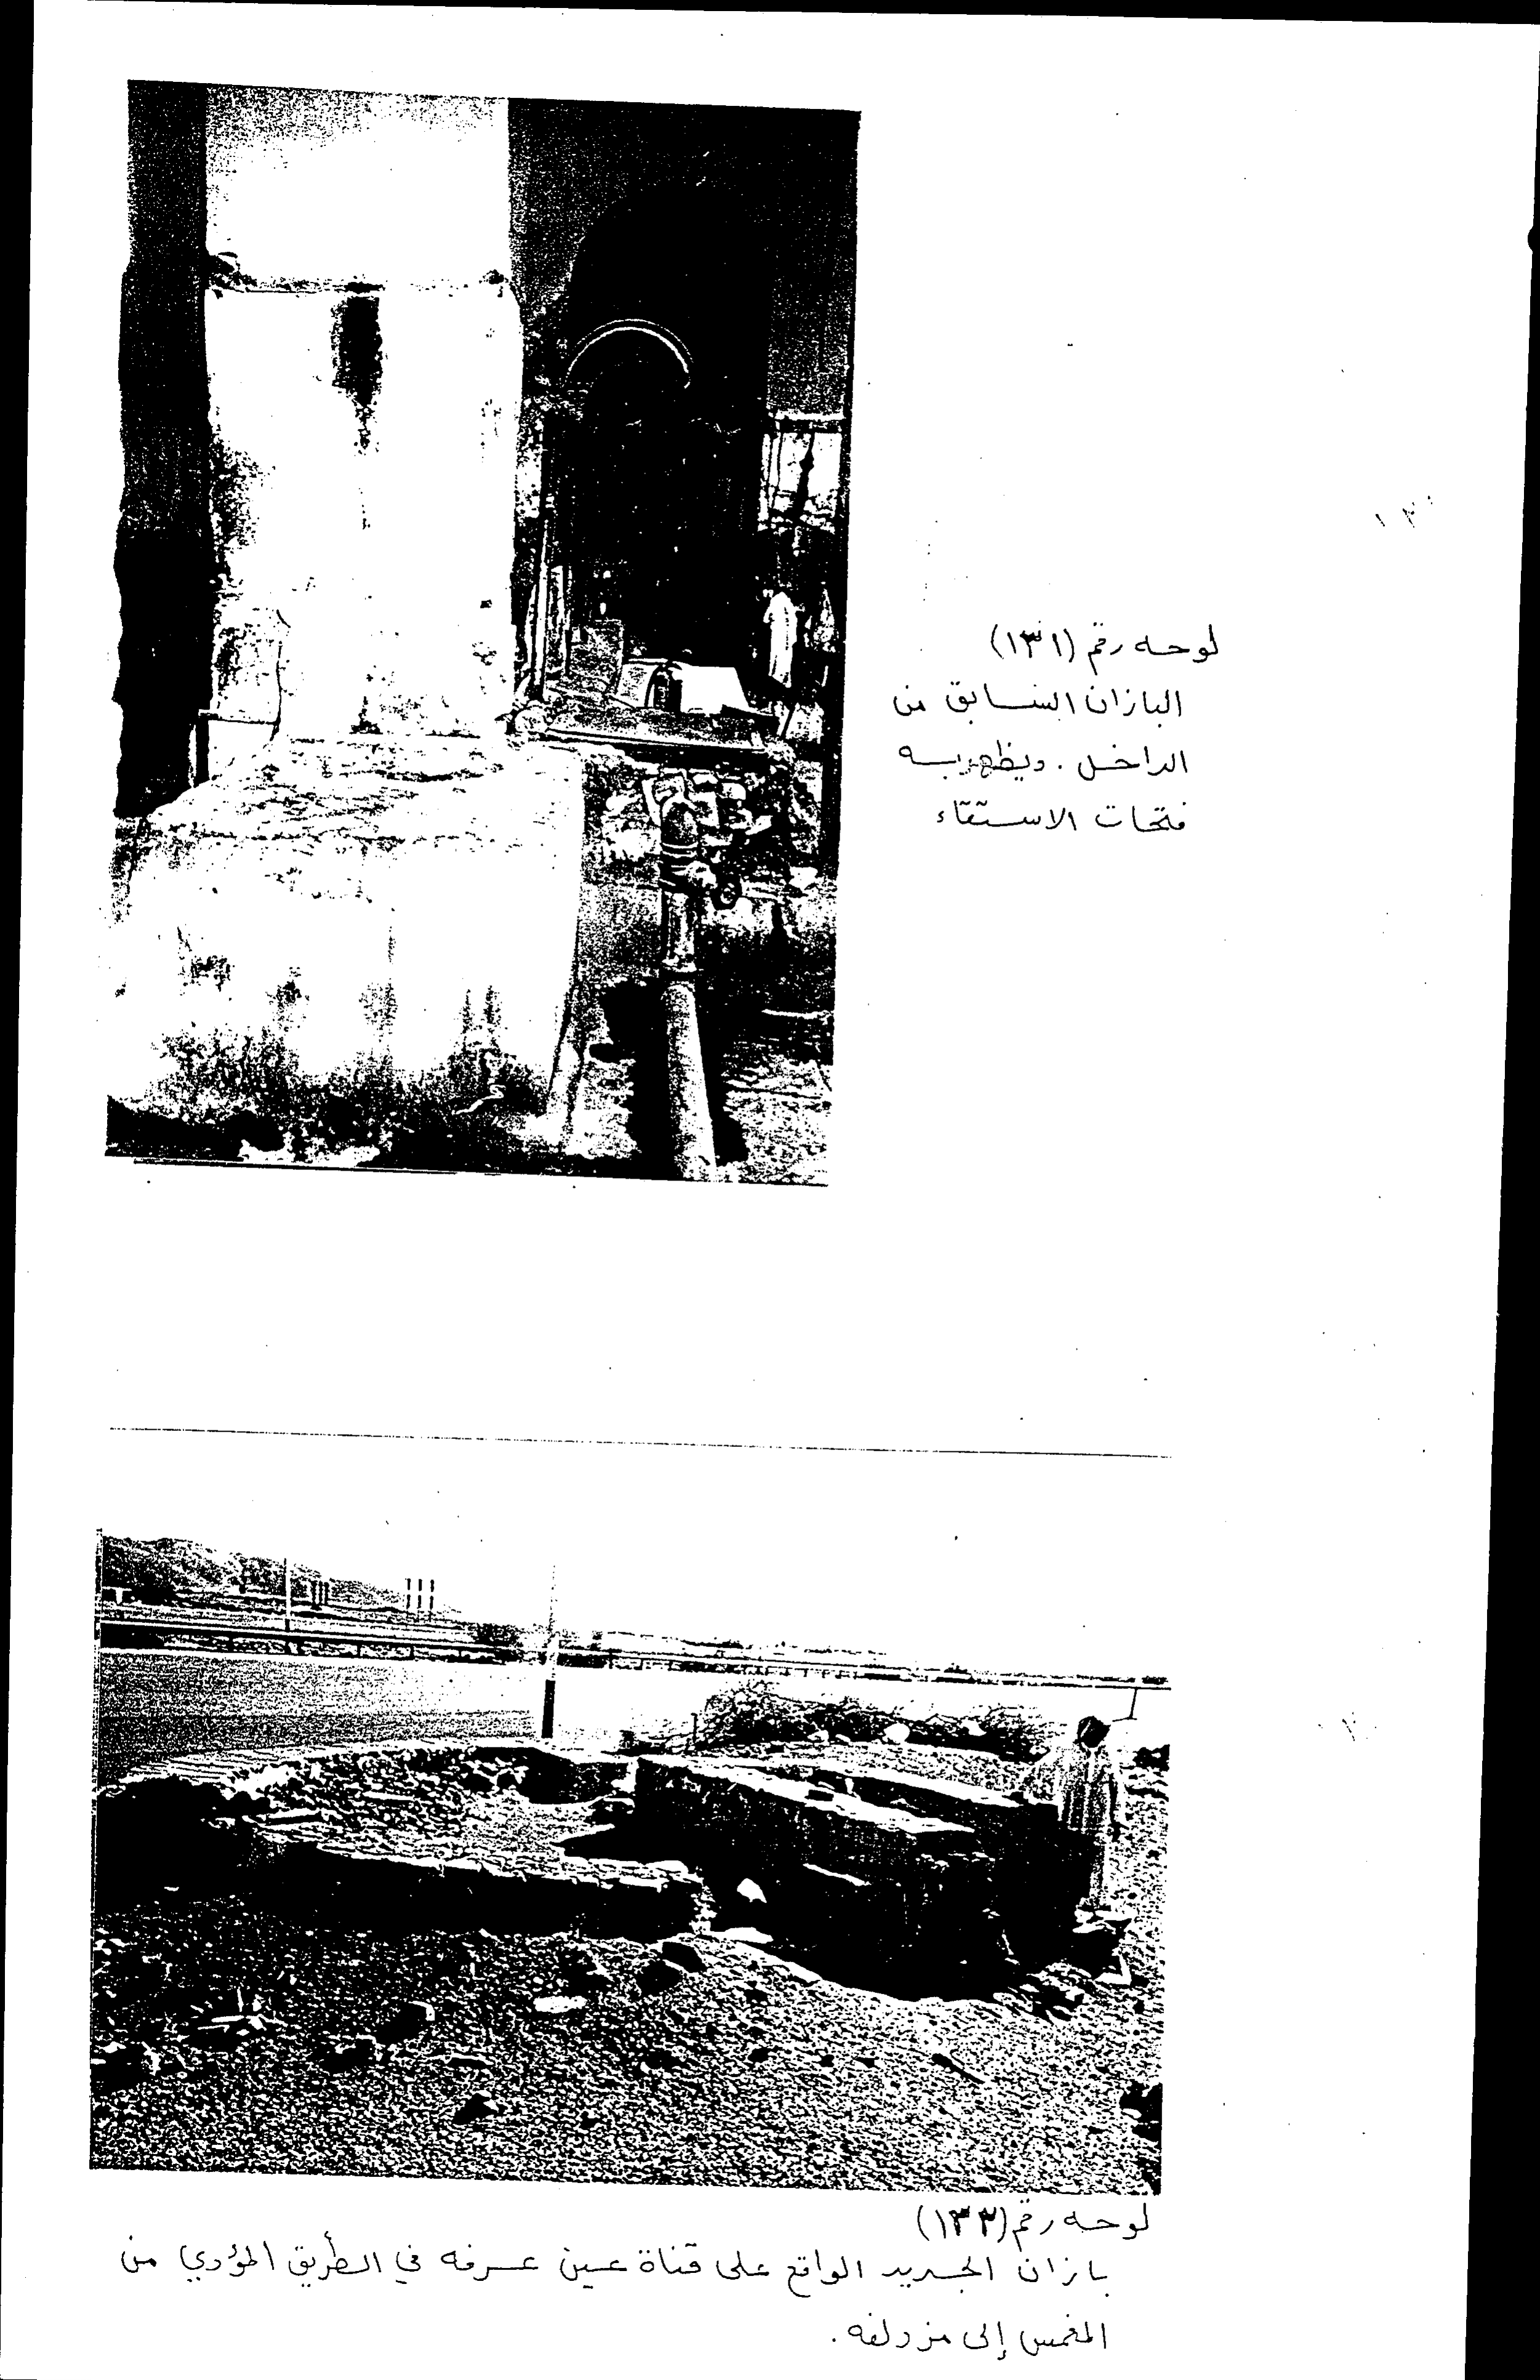 لوحه رقم (١٣١)
البازان السابق من
الداخل . ويظهر به
فتحات الاستقاء
لوحه رقم (١٣٢)
بازان الجديد الواقع على قناة عين عرفه في الطريق المؤدي من
المغمس إلى مزدلفه .